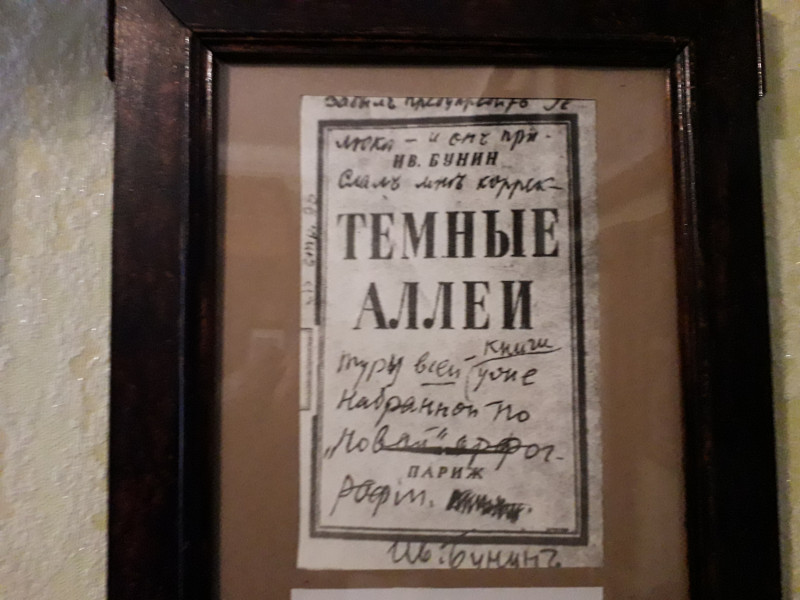 забылъ предупредить Ze
люка — и онъ при-
ИВ. БУНИН
слалъ мнѣ коррек-
ТЕМНЫЕ
АЛЛЕИ
книги
туры всей уже
набранной по
„Новой" орфог-
ПАРИЖ
рафiи.
Ив. Бунинъ.